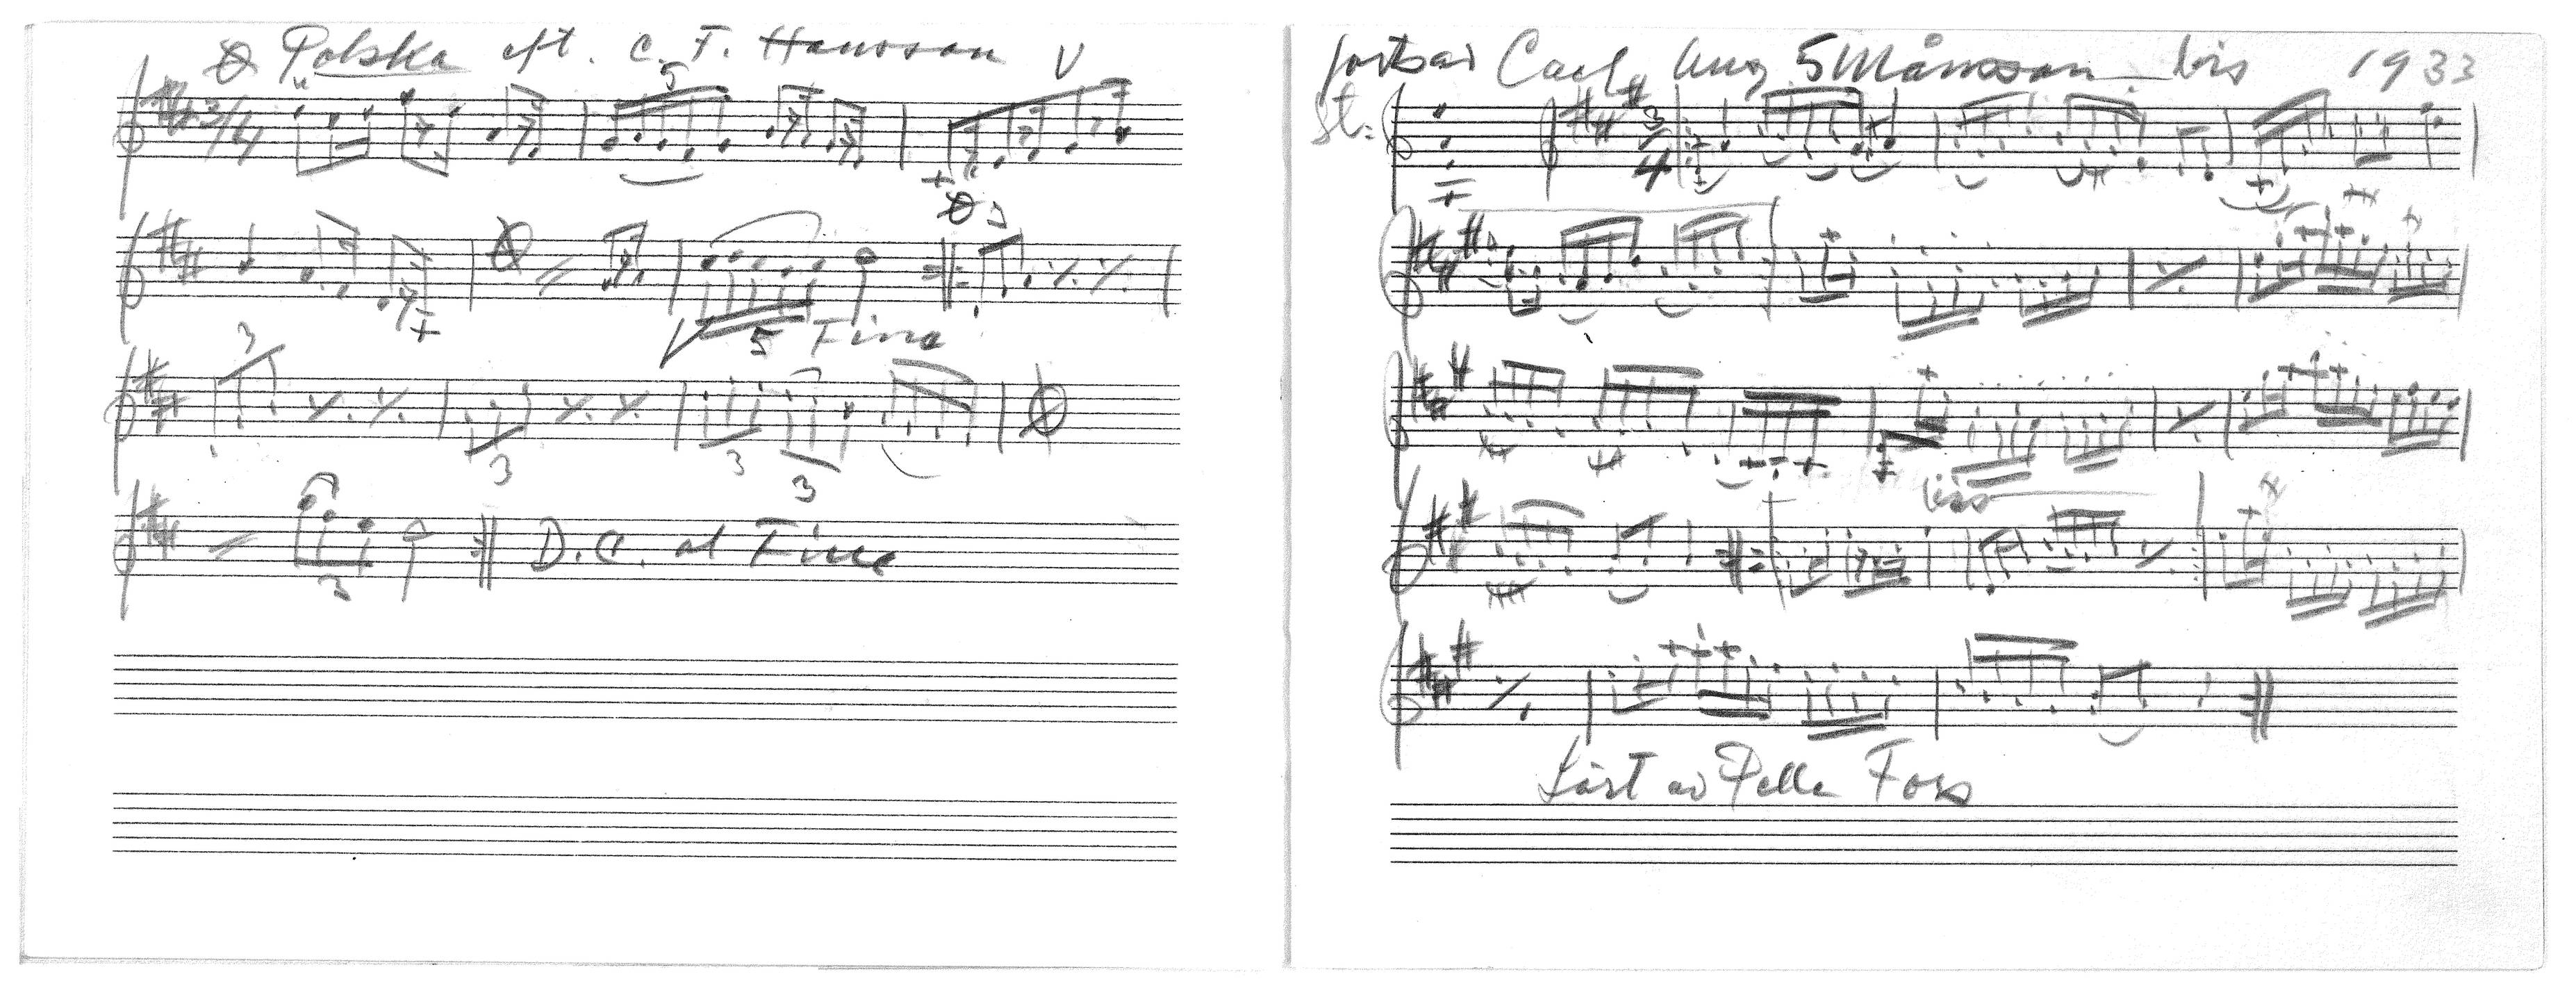 Polska eft. C. F. Hansson V
3/4
5
5 Fine
3
3
3
3
3
D.C. al Fine
Carl Aug Månsson bis 1933
5
St:
3
4
bis
Lärt av Pelle Fors